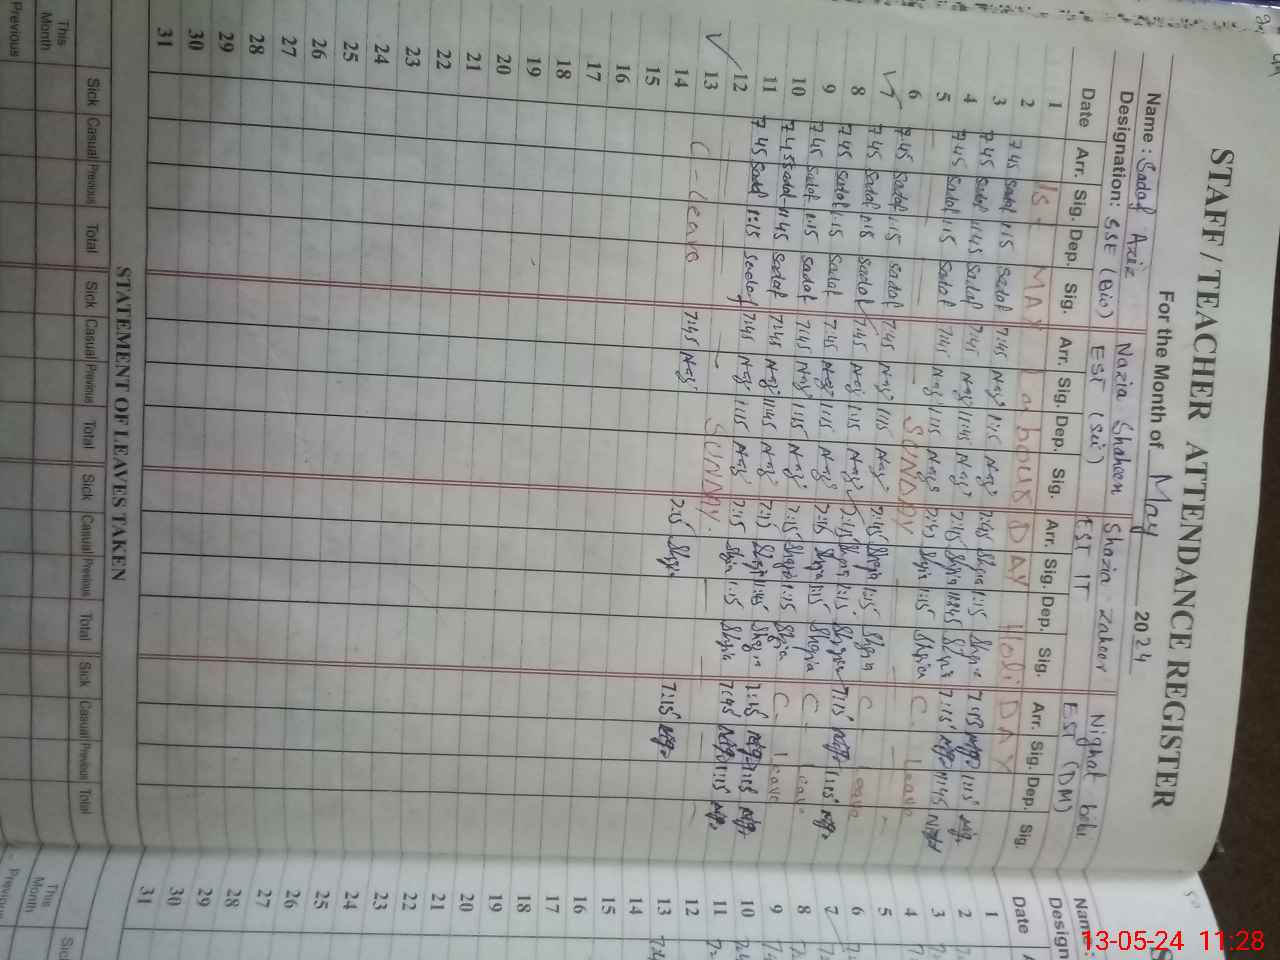 STAFF / TEACHER ATTENDANCE REGISTER
For the Month of May 2024
Name : Sadaf Aziz Nazia Shaheen Shazia Zaheer Nighat bibi
Designation: SSE (Bio) EST (sci) EST IT EST (DM)
Date Arr. Sig. Dep. Sig. Arr. Sig. Dep. Sig. Arr. Sig. Dep. Sig. Arr. Sig. Dep. Sig.
1 1st MAY Labour DAY HoliDAY
2 7:45 Sadaf 1:15 Sadaf 7:45 Naz 1:15 Naz 7:45 Shzia 1:15 Shzia 7:45 1:15
3 7:45 Sadaf 11:45 Sadaf 7:45 Naz 11:45 Naz 7:45 Shzia 11:45 Shzia 7:15 11:45
4 7:45 Sadaf 1:15 Sadaf 7:45 Naz 1:15 Naz 7:45 Shzia 1:15 Shzia C. Leave
5 SUNDAY
6 7:45 Sadaf 1:15 Sadaf 7:45 Naz 1:15 Naz 7:45 Shzia 1:15 Shzia C Leave
7 7:45 Sadaf 1:15 Sadaf 7:45 Naz 1:15 Naz 7:45 Shzia 1:15 Shzia 7:15 1:15
8 7:45 Sadaf 1:15 Sadaf 7:45 Naz 1:15 Naz 7:15 Shzia 1:15 Shzia C. Leave
9 7:45 Sadaf 1:15 Sadaf 7:45 Naz 1:15 Naz 7:15 Shzia 1:15 Shzia C. Leave
10 7:45 Sadaf 11:45 Sadaf 7:45 Naz 11:45 Naz 7:15 Shzia 11:45 Shzia 7:15
11 7:45 Sadaf 1:15 Sadaf 7:45 Naz 1:15 Naz 7:15 Shzia 1:15 Shzia 7:45 1:15
12 SUNDAY.
13 C - Leave 7:45 Naz 7:15 Shzia 7:15
14
15
16
17
18
19
20
21
22
23
24
25
26
27
28
29
30
31
STATEMENT OF LEAVES TAKEN
Sick Casual Previous Total Sick Casual Previous Total Sick Casual Previous Total Sick Casual Previous Total
This Month
Previous
Name :
Design
Date
1
2
3
4
5
6
7
8
9
10
11
12
13
14
15
16
17
18
19
20
21
22
23
24
25
26
27
28
29
30
31
Sick
This Month
Previous
13-05-24 11:28